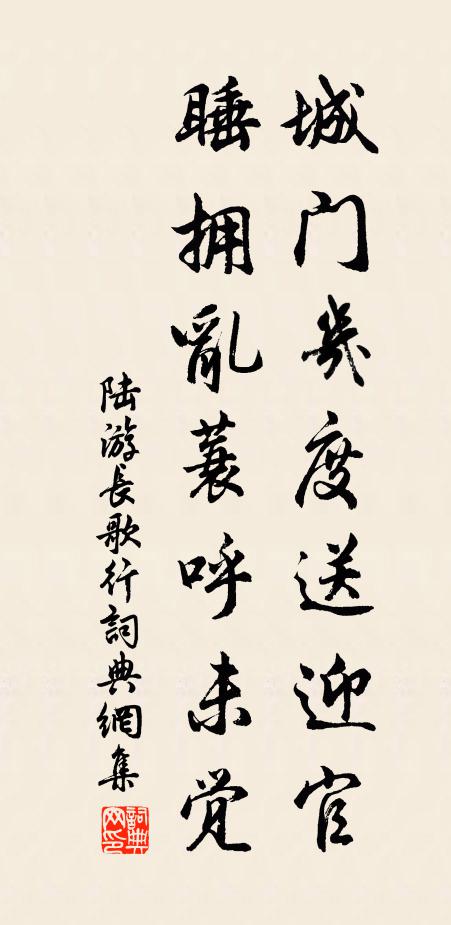 城门几度送迎官
睡拥乱蓑呼未觉
陆游长歌行詞典網集
詞典网印